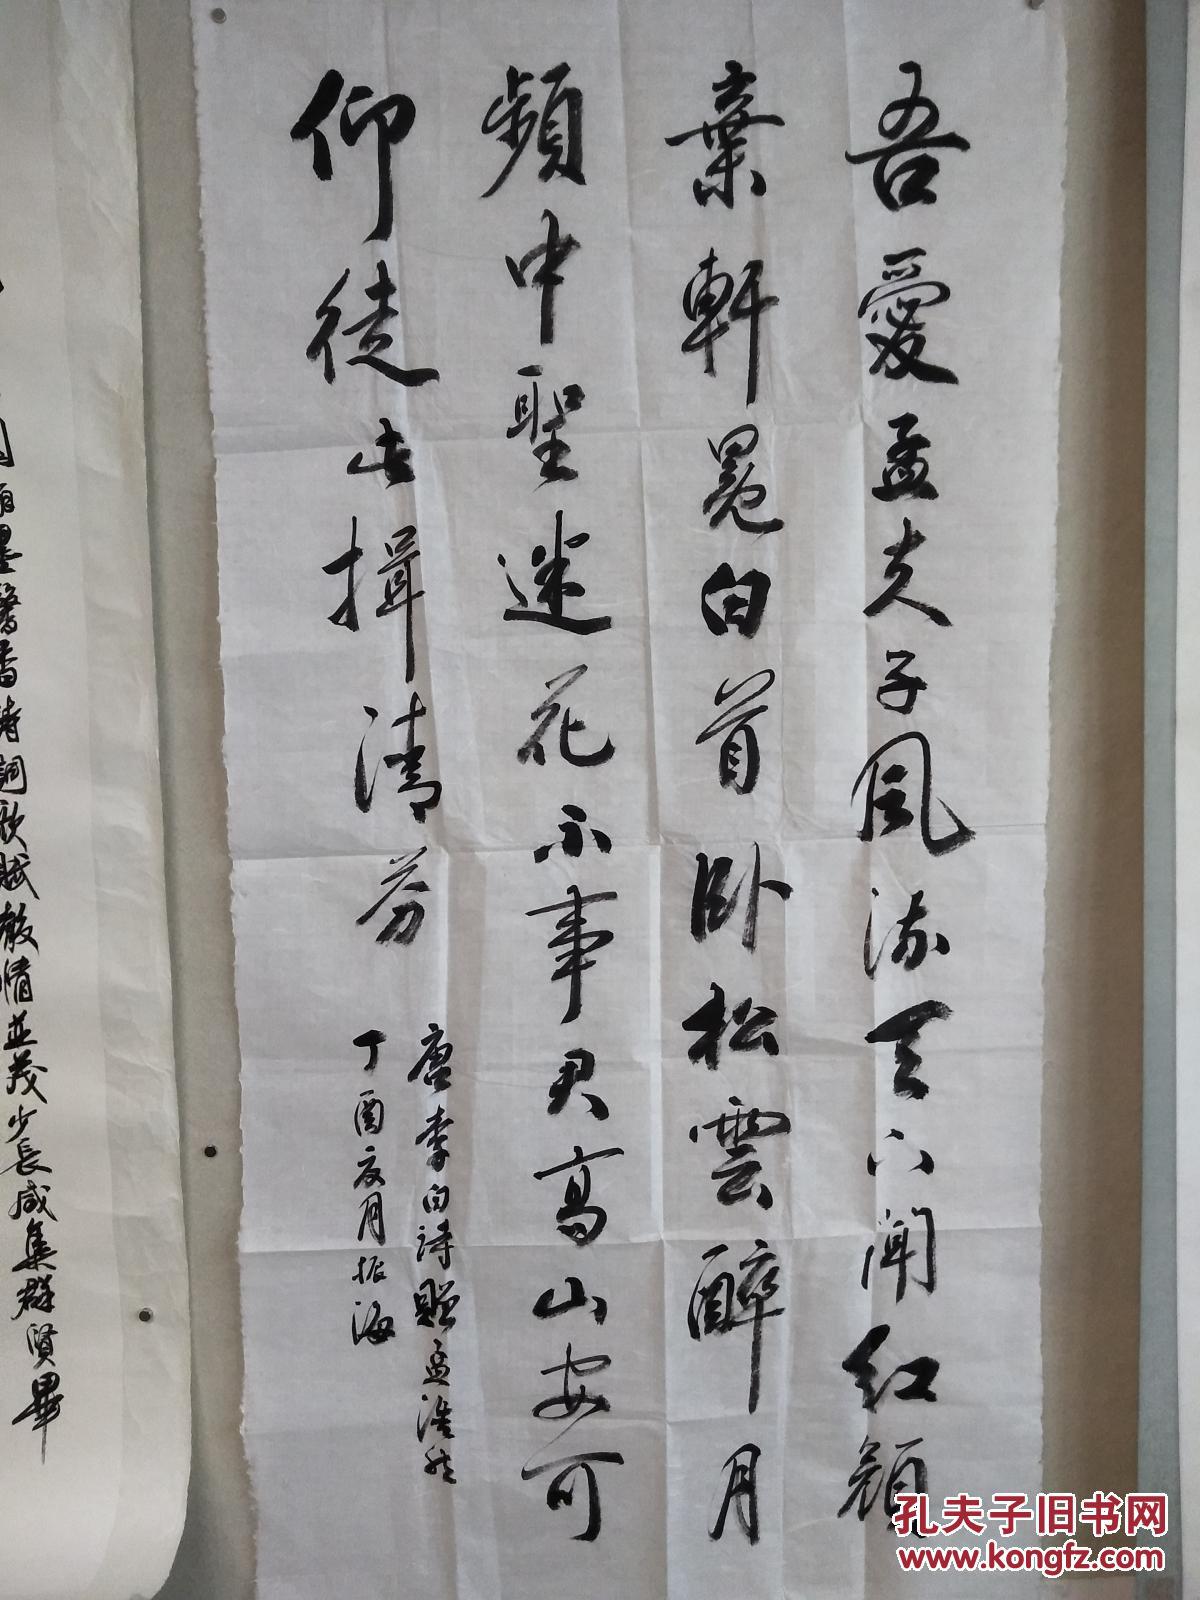 吾愛孟夫子風流天下聞紅顔
棄軒冕白首卧松雲醉月
頻中聖迷花不事君高山安可
仰徒此揖清芬
唐李白詩贈孟浩然
丁酉夏月振海
墨馨香詩詞歌賦聲情並茂少長咸集群賢畢
孔夫子旧书网
www.kongfz.com